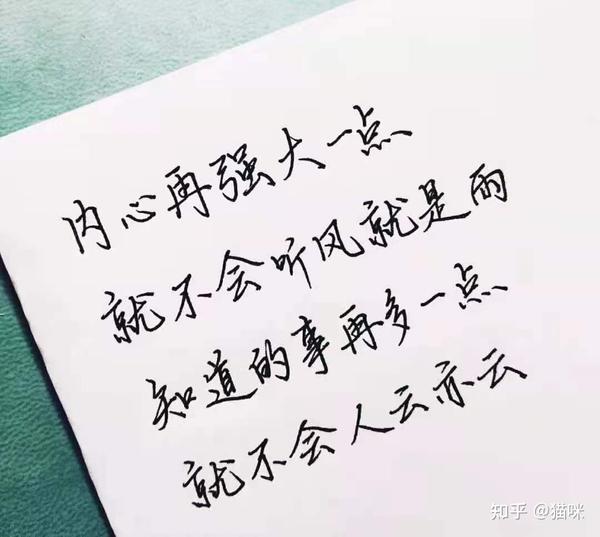 内心再强大一点
就不会听风就是雨
知道的事再多一点
就不会人云亦云
知乎 @猫咪